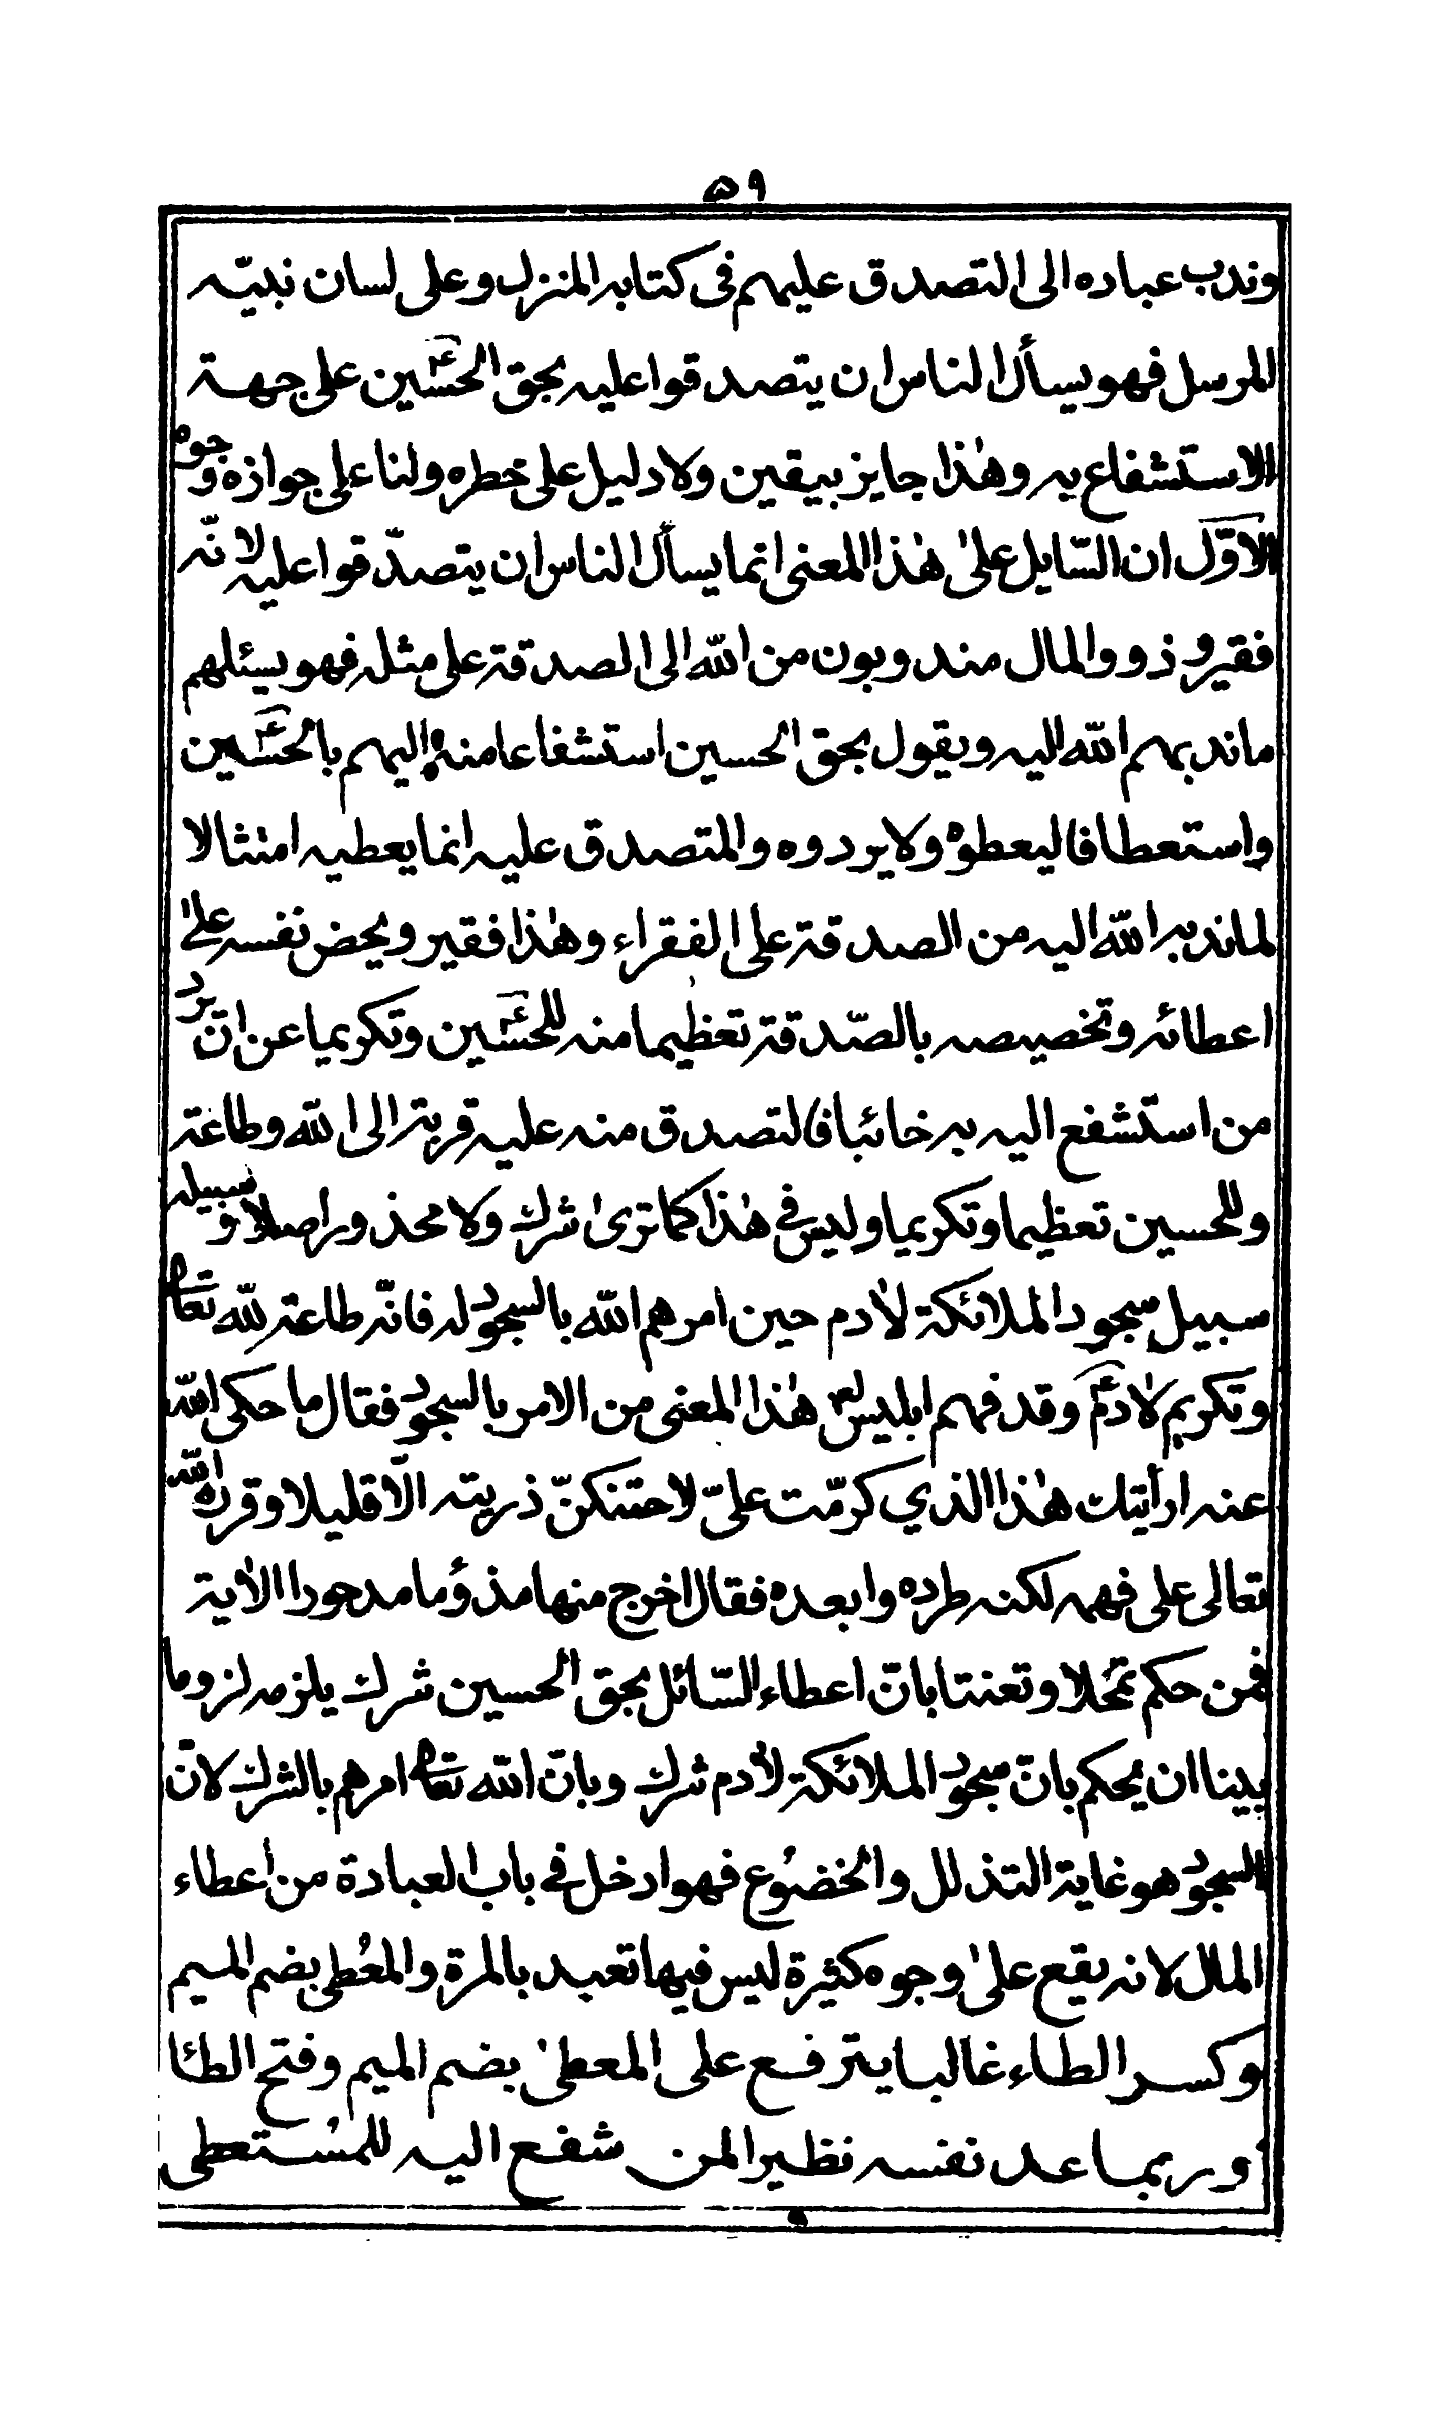 ٥٩
وندب عباده الى التصدق عليهم فى كتابه المنزل وعلى لسان نبيّه
المرسل فهو يسأل الناس ان يتصدقوا عليه بحق الحسينؑ على جهة
الاستشفاع به وهٰذا جايز بيقين ولا دليل على خطره ولنا على جوازه وجوه
الاوّل ان السّايل علىٰ هٰذا المعنى انما يسأل الناس ان يتصدّقوا عليه لانّه
فقير و ذوو المال مندوبون من الله الى الصدقة على مثله فهو يسئلهم
ما ندبهم الله اليه ويقول بحق الحسين استشفاعا منه إليهم بالحسينؑ
واستعطافا ليعطوه ولا يردوه والمتصدق عليه انما يعطيه امتثالا
لما ندبه الله اليه من الصدقة على الفقراء وهٰذا فقير ويحض نفسه علىٰ
اعطائه وتخصيصه بالصّدقة تعظيما منه للحسينؑ وتكريما عن انّ يردّ
من استشفع اليه به خائبا فالتصدق منه عليه قربة الى الله وطاعة
وللحسين تعظيما وتكريما وليس فى هٰذا كما ترىٰ شرك ولا محذور اصلا وسبيله
سبيل سجود الملائكة لاٰدم حين امرهم الله بالسجود له فانّه طاعة لله تعالى
وتكريم لاٰدمؑ وقد فهم ابليس هٰذا المعنى من الامر بالسجود فقال ما حكى الله
عنه ارأيتك هٰذا الذي كرمّت علىّ لاحتنكنّ ذريته الّا قليلا وقرره الله
تعالى على فهمه لكنه طرده وابعده فقال اخرج منها مذؤما مدحورا الاٰية
فمن حكم تمحلا وتعنتا بانّ اعطاء السّائل بحق الحسين شرك يلزمه لزوما
بينا ان يحكم بانّ سجود الملائكة لاٰدم شرك وبانّ الله تعالى امرهم بالشرك لانّ
السجود هو غاية التذلل والخضوع فهو ادخل فى باب العبادة من اعطاء
المال لانه يقع علىٰ وجوه كثيرة ليس فيها تعبد بالمرة والمعُطى بضم الميم
وكسر الطاء غالبا يترفع على المعطىٰ بضم الميم وفتح الطاء
وربما عد نفسه نظير المن شفع اليه للمسُتعطى